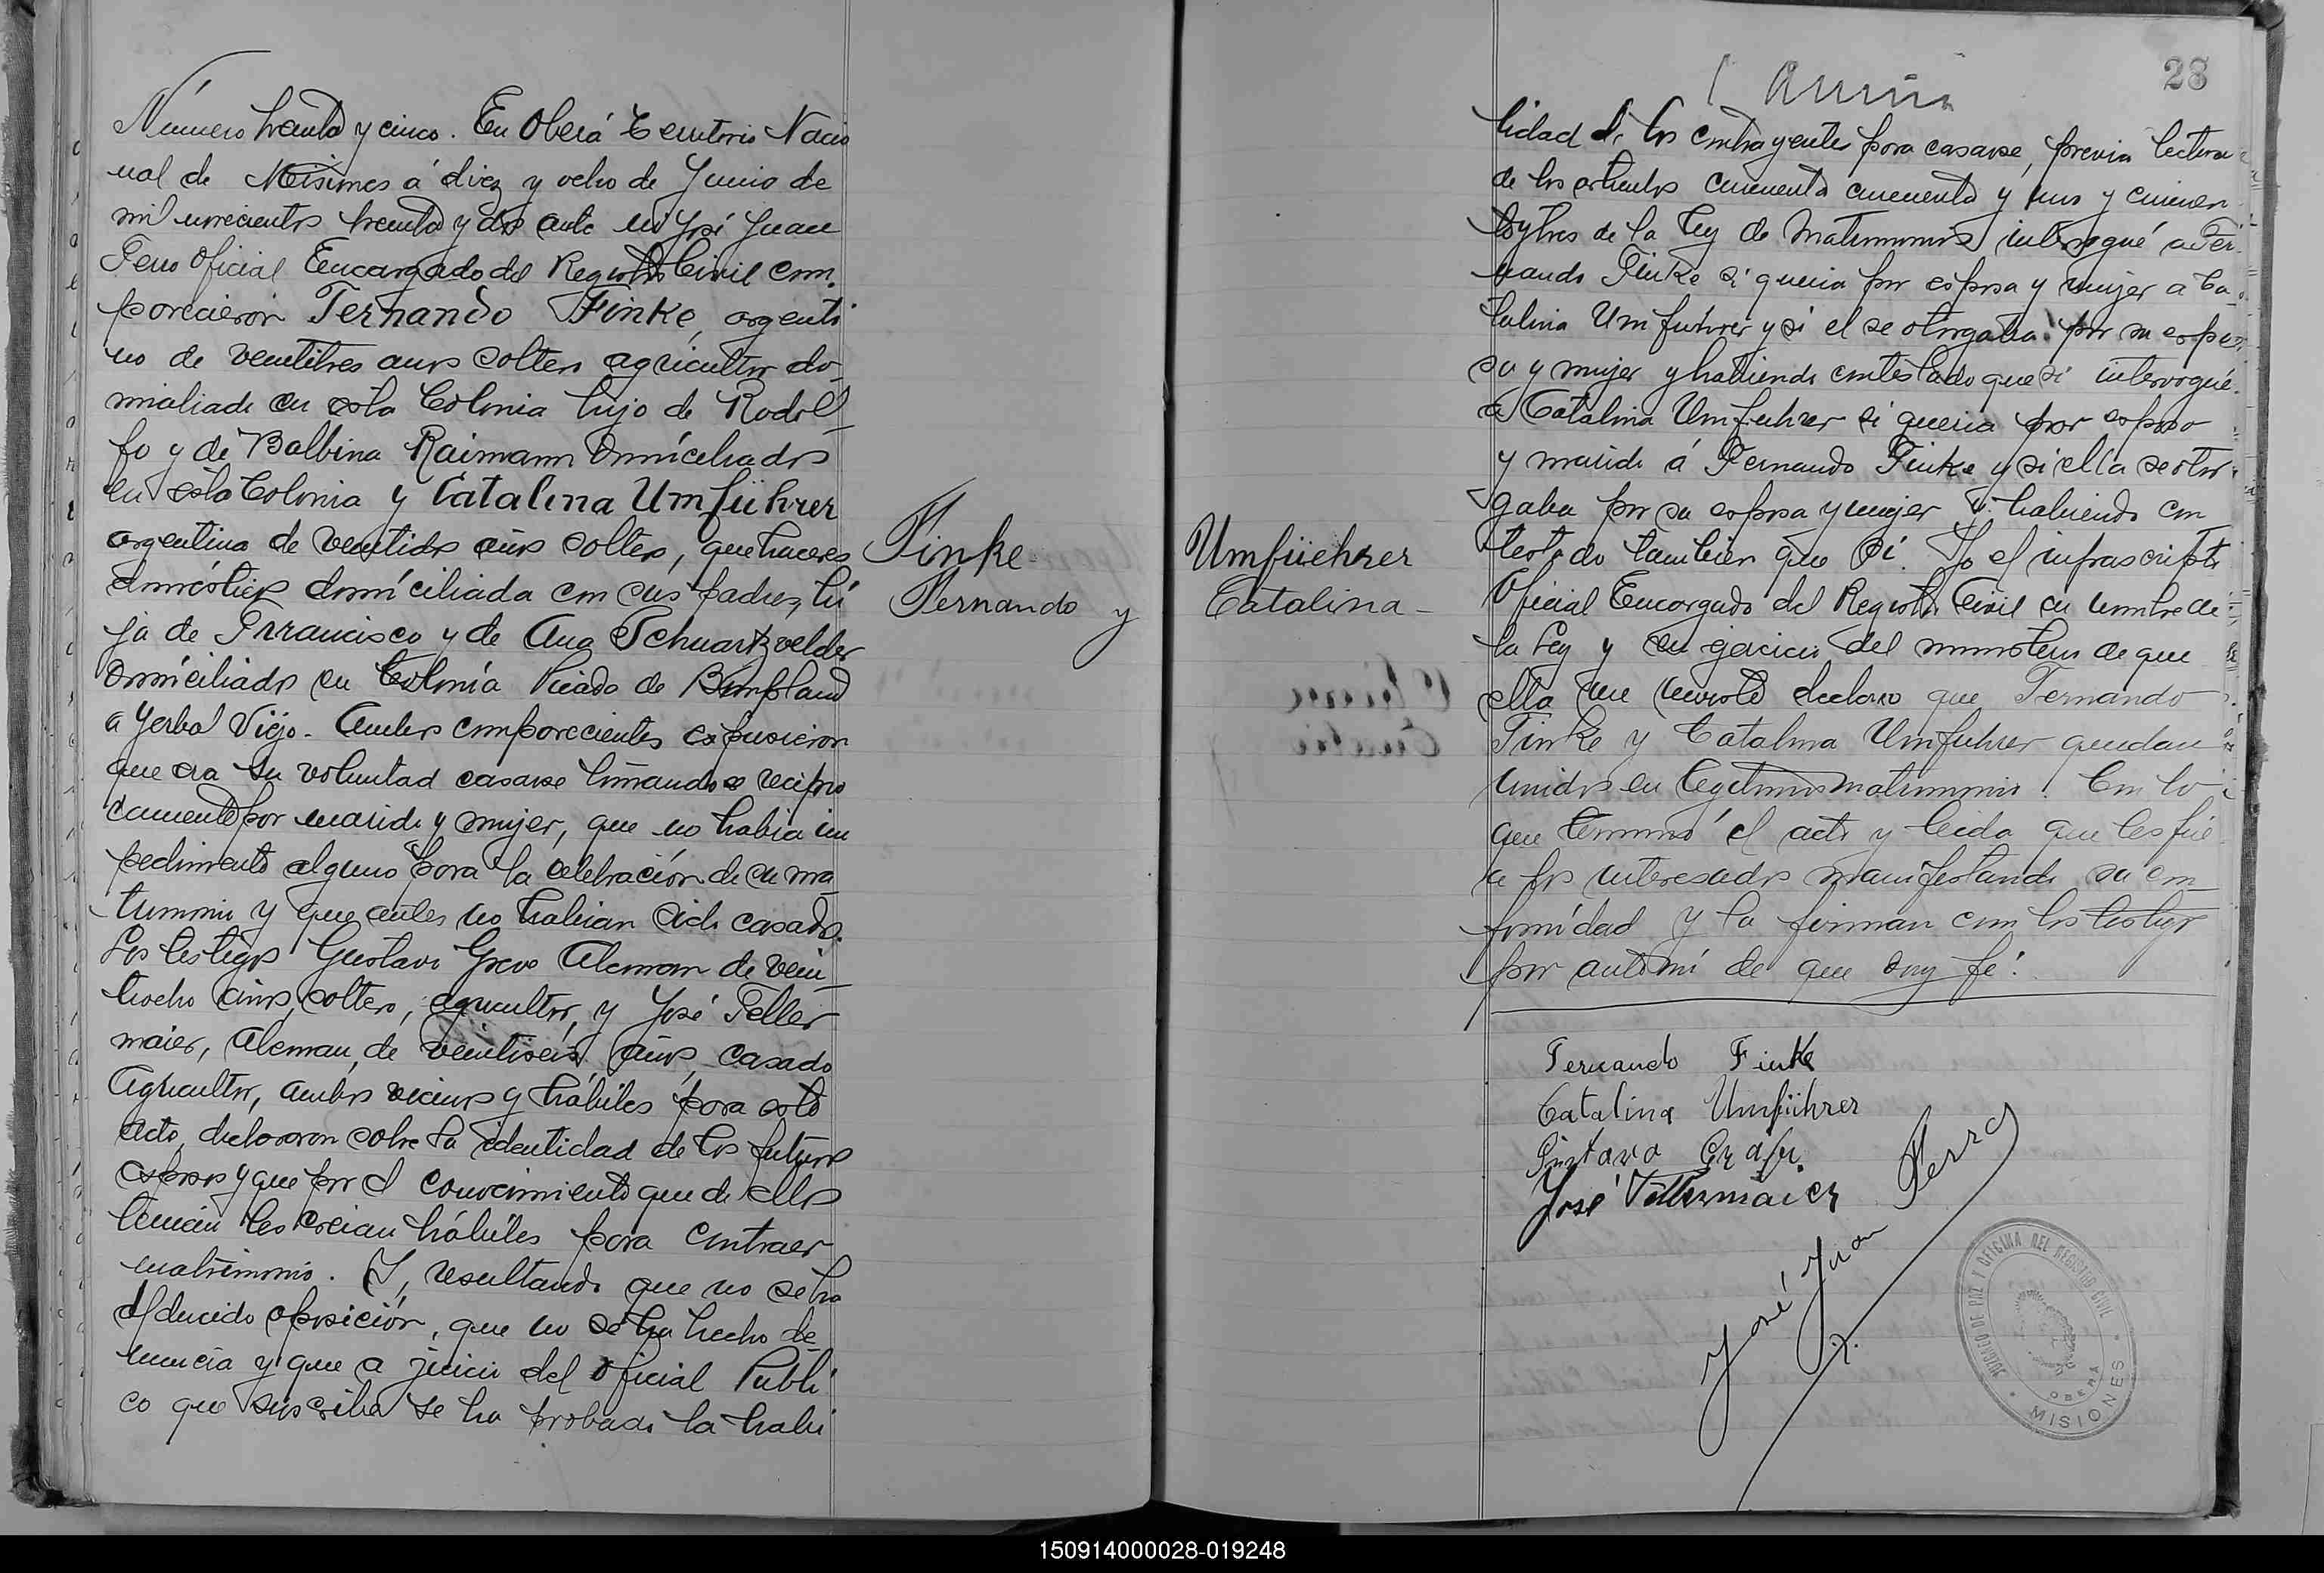 Número treinta y cinco. En Oberá Territorio Nacio
nal de Misiones á diez y ocho de Junio de
mil novecientos treinta y dos ante mi José Juan
Perro Oficial Encargado del Registro Civil com-
parecieron Fernando Finke, argenti
no de veintitres años soltero agricultor do-
miciliado en esta Colonia hijo de Rodol
fo y de Balbina Raimann domiciliados
en esta Colonia y Catalina Umführer
argentina de veintidos años soltera, quehaceres
domésticos domiciliada con sus padres, hi
ja de Francisco y de Ana Schuartzvelder
domiciliados en Colonia Picada de Bompland
a Yerbal Viejo. Ambos comparecientes expusieron
que era su voluntad casarse tomandose recipro
camente por marido y mujer, que no habia im
pedimento alguno para la celebración de su ma
trimonio y que antes no habian sido casados.
Los testigos Gustavo Greve Aleman de vein-
tiocho años, soltero, agricultor, y José Feller
maier, Aleman, de veintiseis años, casado
Agricultor, ambos vecinos y hábiles para este
acto, declararon sobre la identidad de los futuros
esposos y que por el conocimiento que de ellos
tenian les creian hábiles para contraer
matrimonio. Y, resultando que no se ha
deducido oposición, que no se ha hecho de
nuncia y que a juicio del Oficial Publi
co que suscribe se ha probado la habi
Finke
Fernando y
Umfüehrer
Catalina-
28
lidad de los contrayentes para casarse, previa lectura
de los articulos cincuenta cincuenta y uno y cincuen
ta y tres de la Ley de Matrimonio interrogué a Fer-
nando Finke si queria por esposa y mujer a Ca
talina Umfuhrer y si el se otorgaba por su espo
so y mujer y habiendo contestado que si interrogué
a Catalina Umfuhrer si queria por esposo
y marido á Fernando Finke y si ella se otor
gaba por su esposa y mujer Y habiendo con
testado tambien que Si. Yo el infrascripto
Oficial Encargado del Registro Civil en nombre de
la Ley y en ejercicio del ministerio de que
ella me reviste declaro que Fernando
Finke y Catalina Umfuhrer quedan
unidos en legitimo matrimonio. Con lo
que terminó el acto y leida que les fué
a los interesados manifestando su con
formidad y la firman con los testigos
por ante mí de que doy fé.
Fernando Finke
Catalina Umführer
José Fellermaier
José Juan Perro
JUZGADO DE PAZ Y OFICINA DEL REGISTRO CIVIL
OBERÁ
MISIONES
150914000028-019248